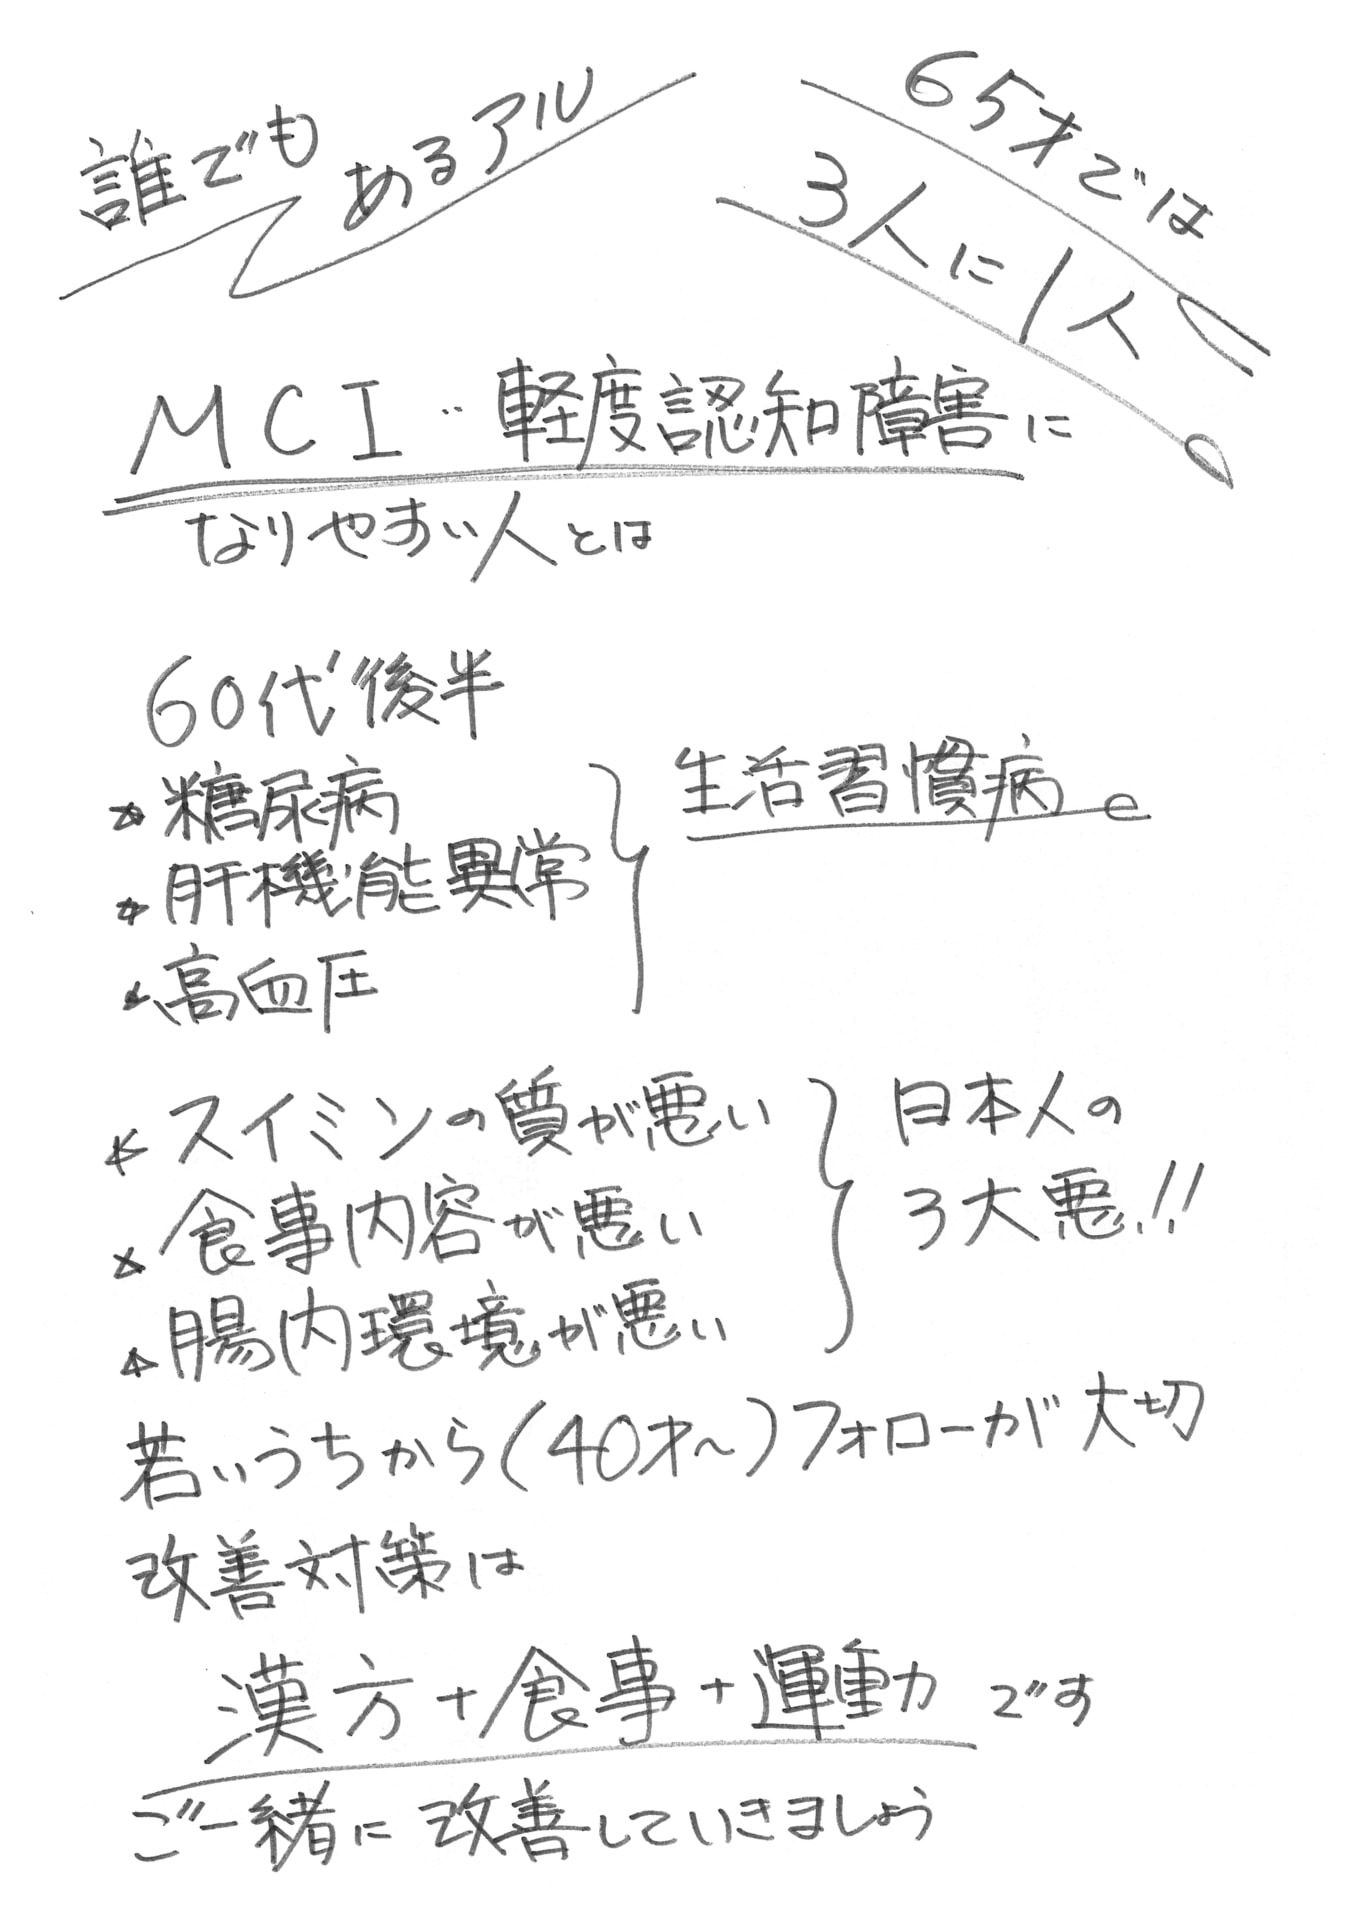 誰でも
あるアル
65才では
3人に1人
MCI‥軽度認知障害に
なりやすい人とは
60代後半
*糖尿病
*肝機能異常
*高血圧
生活習慣病
*スイミンの質が悪い
*食事内容が悪い
*腸内環境が悪い
日本人の
3大悪!!
若いうちから(40才~)フォローが大切
改善対策は
漢方+食事+運動です
ご一緒に改善していきましょう